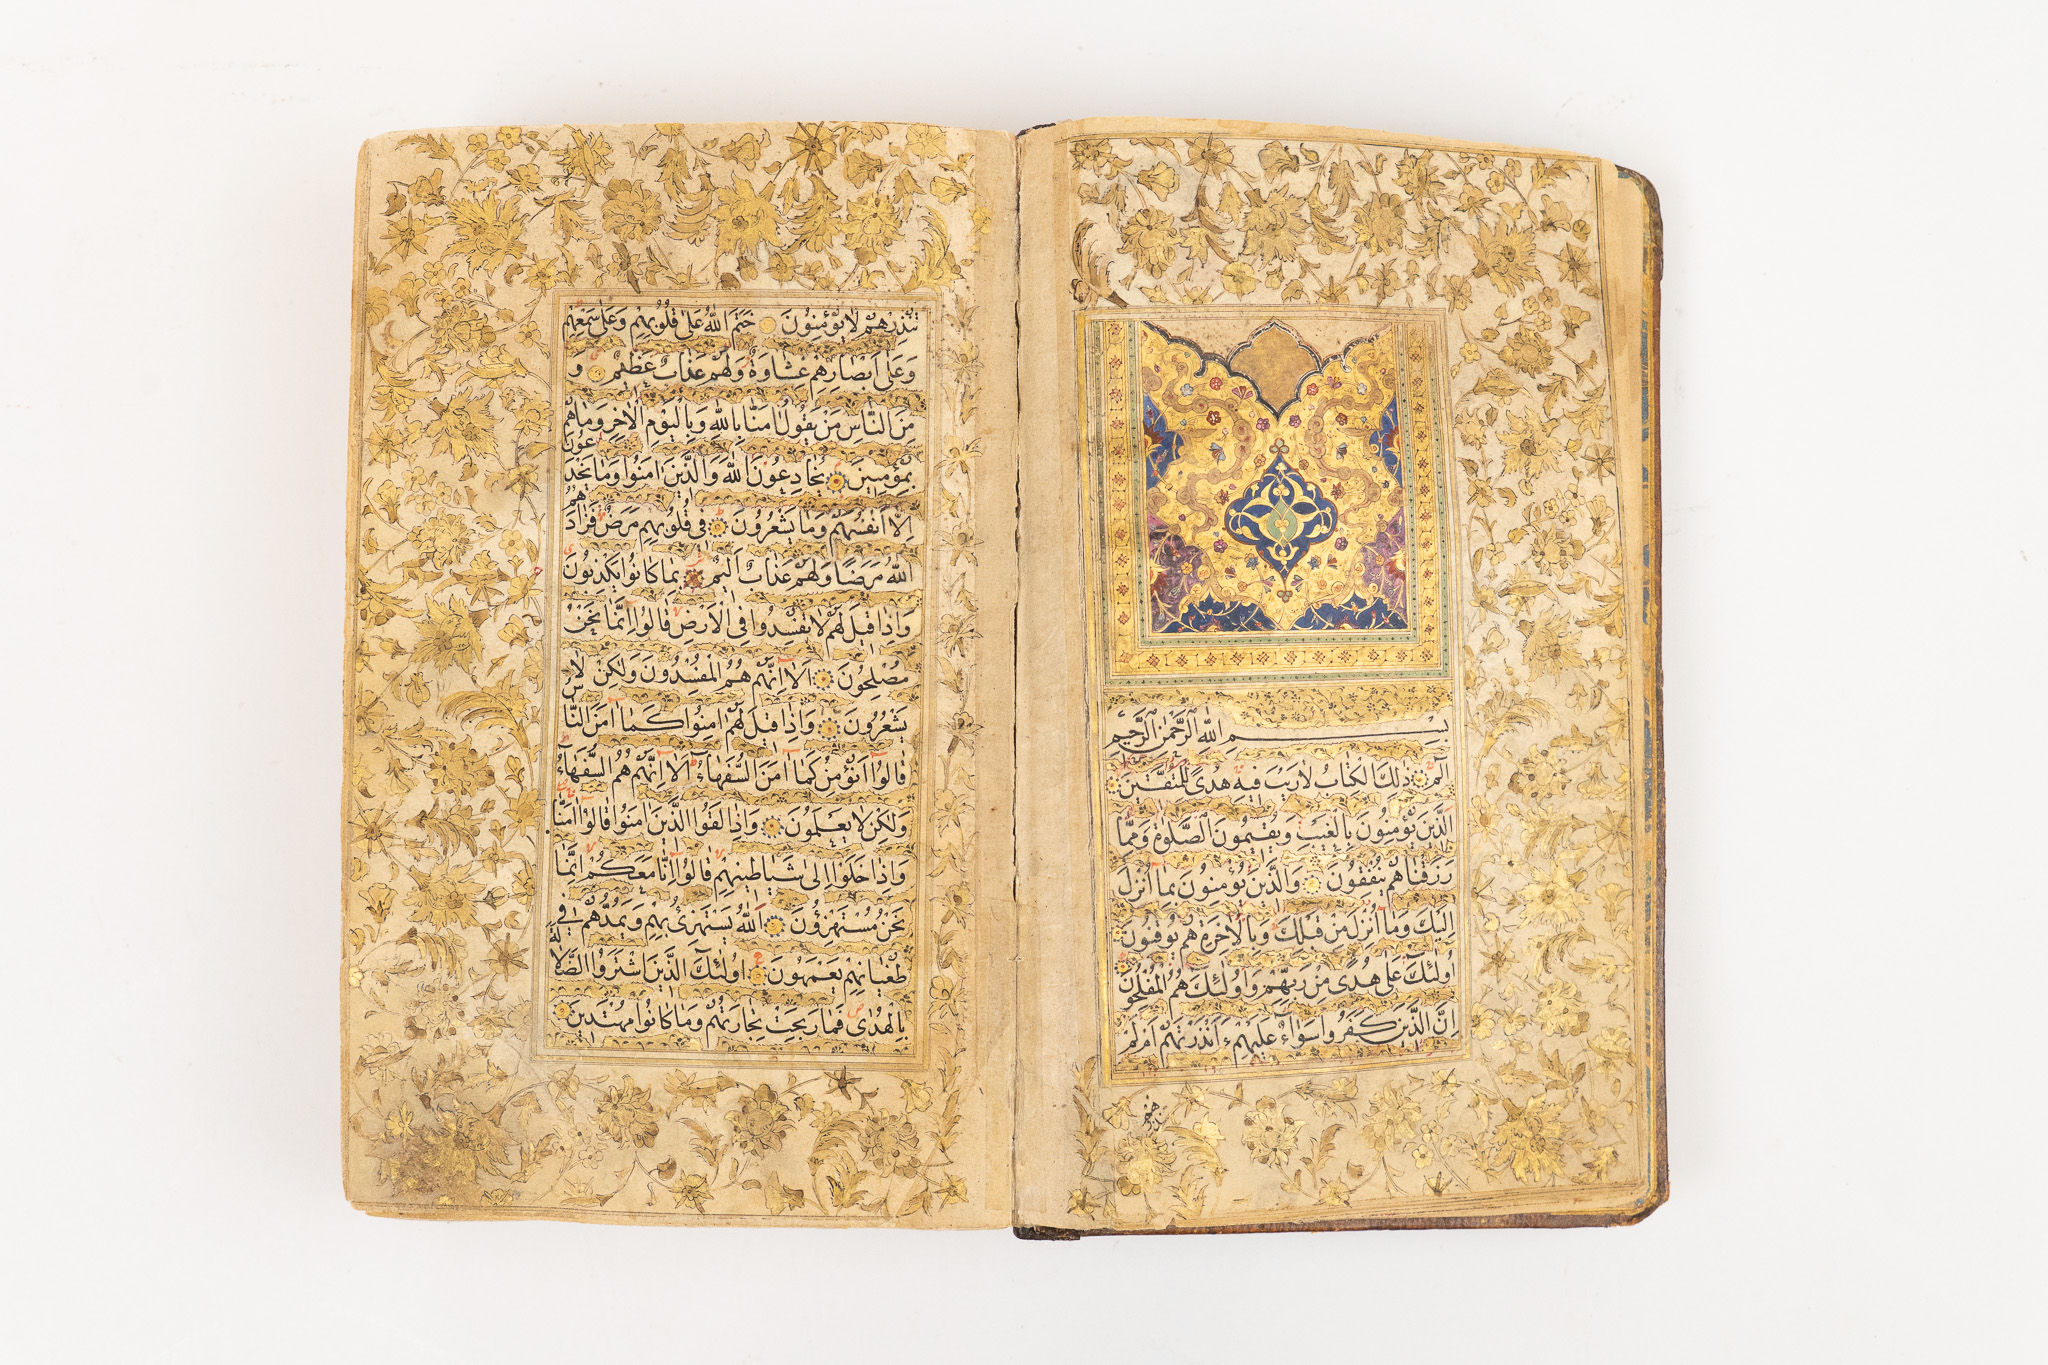 بِسْمِ اللّٰهِ الرَّحْمٰنِ الرَّحِيمِ
الٓمٓ ذٰلِكَ الْكِتَابُ لَا رَيْبَ فِيهِ هُدًى لِلْمُتَّقِينَ
الَّذِينَ يُؤْمِنُونَ بِالْغَيْبِ وَيُقِيمُونَ الصَّلٰوةَ وَمِمَّا
رَزَقْنَاهُمْ يُنْفِقُونَ وَالَّذِينَ يُؤْمِنُونَ بِمَا اُنْزِلَ
اِلَيْكَ وَمَا اُنْزِلَ مِنْ قَبْلِكَ وَبِالْاٰخِرَةِ هُمْ يُوقِنُونَ
اُولٰئِكَ عَلٰى هُدًى مِنْ رَبِّهِمْ وَاُولٰئِكَ هُمُ الْمُفْلِحُونَ
اِنَّ الَّذِينَ كَفَرُوا سَوَاءٌ عَلَيْهِمْ ءَاَنْذَرْتَهُمْ اَمْ لَمْ
تنذرهم
تُنْذِرْهُمْ لَا يُؤْمِنُونَ خَتَمَ اللّٰهُ عَلٰى قُلُوبِهِمْ وَعَلٰى سَمْعِهِمْ
وَعَلٰى اَبْصَارِهِمْ غِشَاوَةٌ وَلَهُمْ عَذَابٌ عَظِيمٌ وَ
مِنَ النَّاسِ مَنْ يَقُولُ اٰمَنَّا بِاللّٰهِ وَبِالْيَوْمِ الْاٰخِرِ وَمَا هُمْ
بِمُؤْمِنِينَ يُخَادِعُونَ اللّٰهَ وَالَّذِينَ اٰمَنُوا وَمَا يَخْدَعُونَ
اِلَّا اَنْفُسَهُمْ وَمَا يَشْعُرُونَ فِي قُلُوبِهِمْ مَرَضٌ فَزَادَهُمُ
اللّٰهُ مَرَضًا وَلَهُمْ عَذَابٌ اَلِيمٌ بِمَا كَانُوا يَكْذِبُونَ
وَاِذَا قِيلَ لَهُمْ لَا تُفْسِدُوا فِي الْاَرْضِ قَالُوا اِنَّمَا نَحْنُ
مُصْلِحُونَ اَلَا اِنَّهُمْ هُمُ الْمُفْسِدُونَ وَلٰكِنْ لَا
يَشْعُرُونَ وَاِذَا قِيلَ لَهُمْ اٰمِنُوا كَمَا اٰمَنَ النَّاسُ
قَالُوا اَنُؤْمِنُ كَمَا اٰمَنَ السُّفَهَاءُ اَلَا اِنَّهُمْ هُمُ السُّفَهَاءُ
وَلٰكِنْ لَا يَعْلَمُونَ وَاِذَا لَقُوا الَّذِينَ اٰمَنُوا قَالُوا اٰمَنَّا
وَاِذَا خَلَوْا اِلٰى شَيَاطِينِهِمْ قَالُوا اِنَّا مَعَكُمْ اِنَّمَا
نَحْنُ مُسْتَهْزِؤُنَ اَللّٰهُ يَسْتَهْزِئُ بِهِمْ وَيَمُدُّهُمْ فِي
طُغْيَانِهِمْ يَعْمَهُونَ اُولٰئِكَ الَّذِينَ اشْتَرَوُا الضَّلَالَةَ
بِالْهُدٰى فَمَا رَبِحَتْ تِجَارَتُهُمْ وَمَا كَانُوا مُهْتَدِينَ